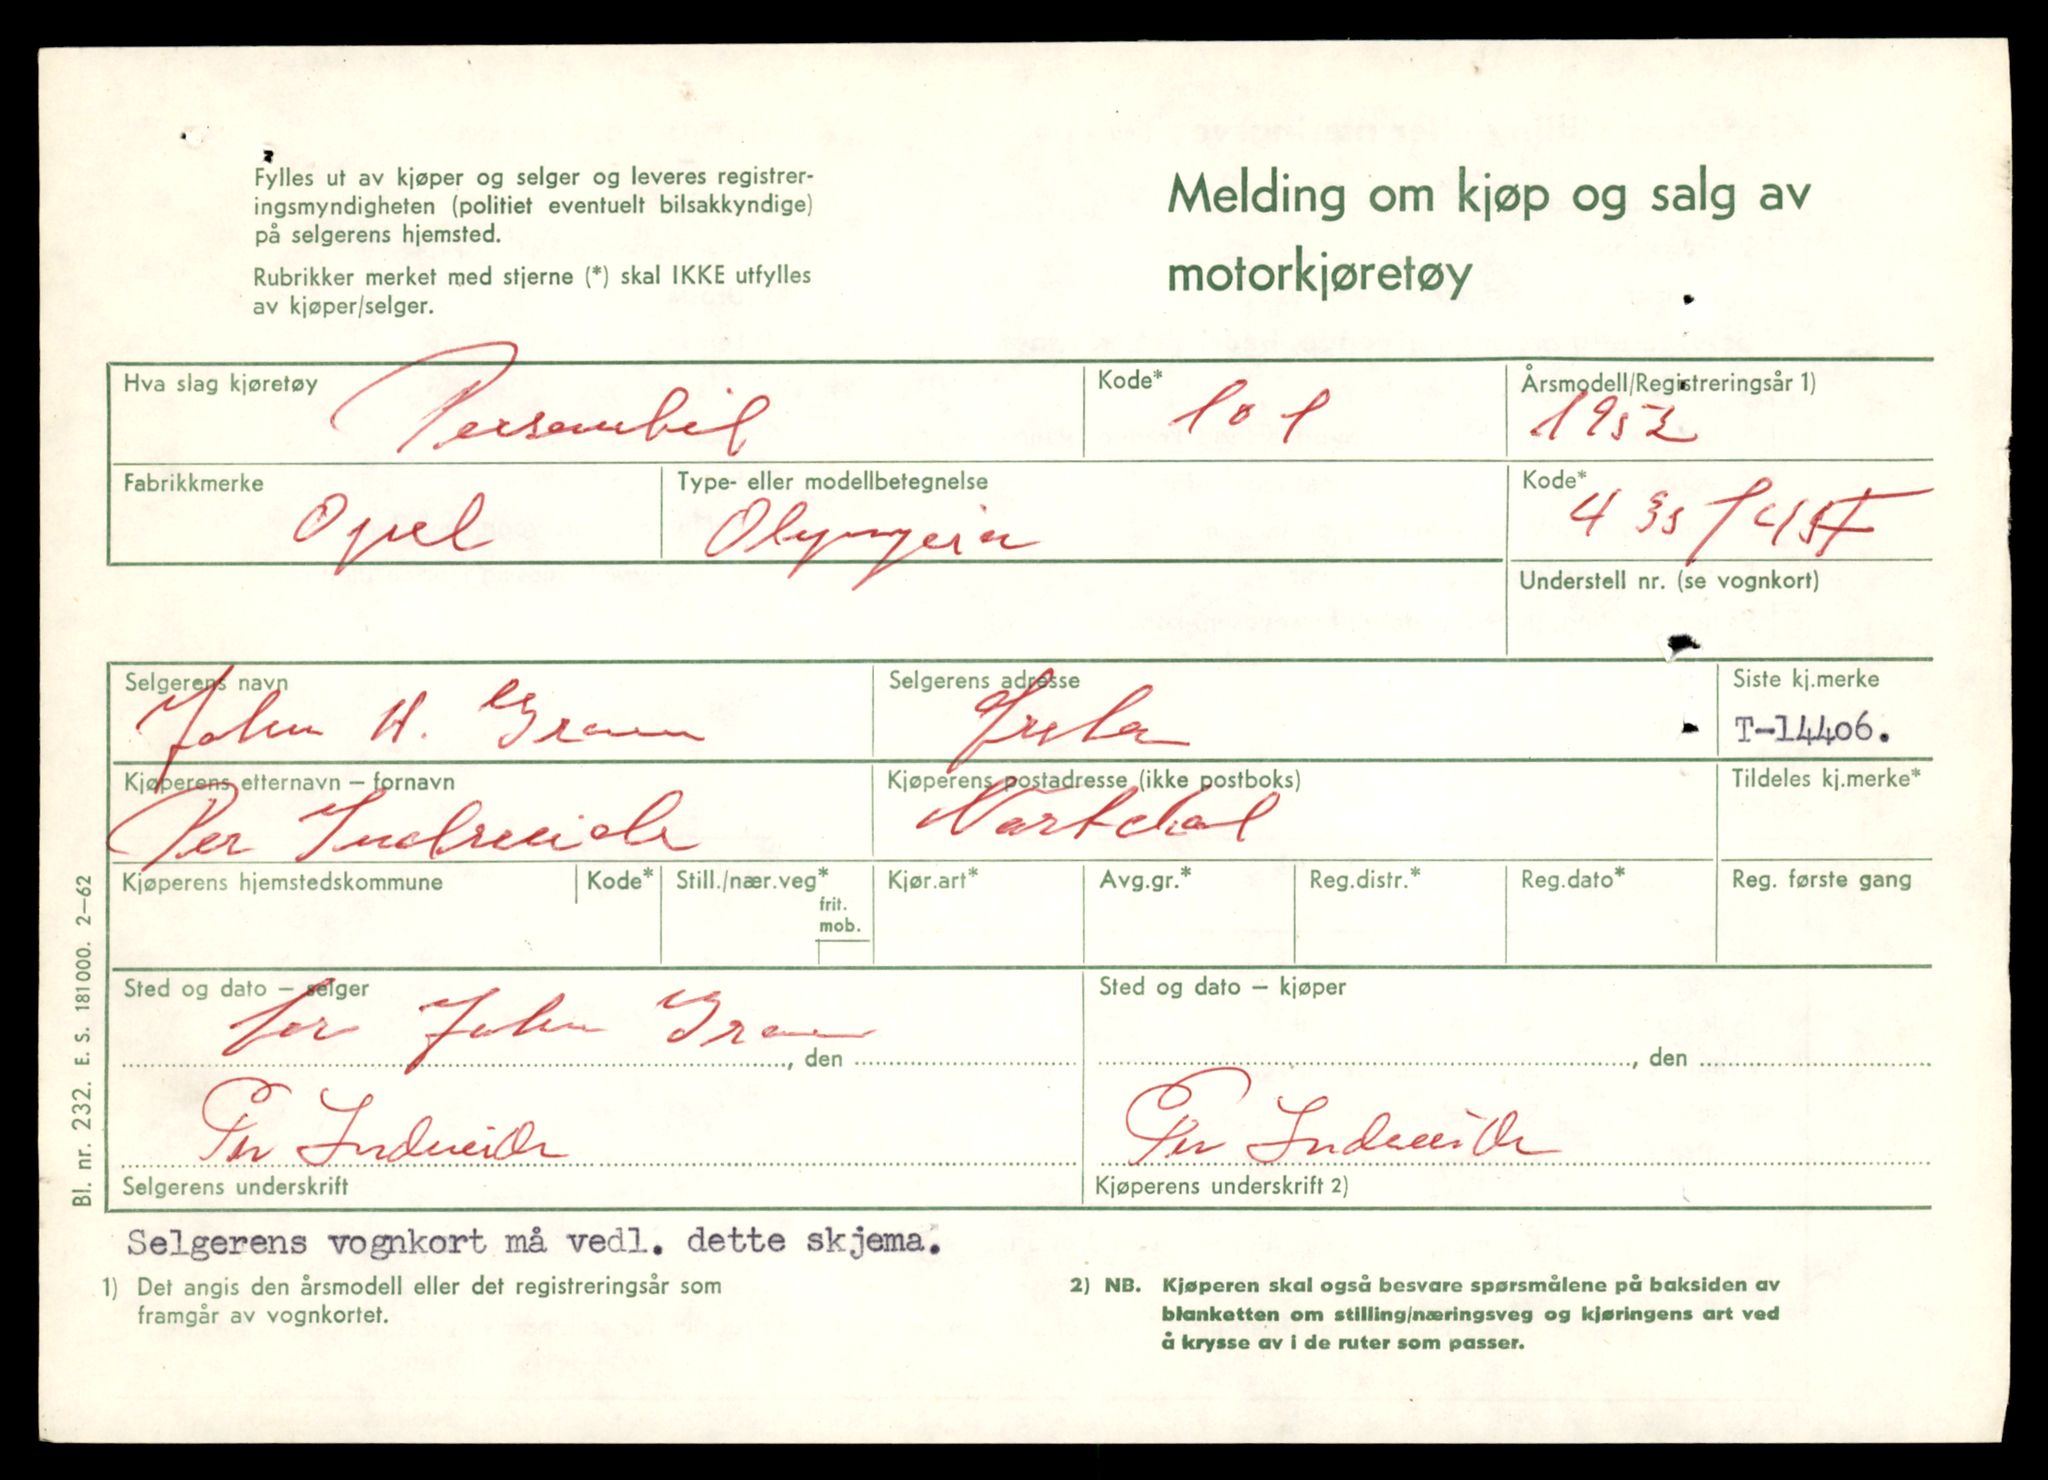 Fylles ut av kjøper og selger og leveres registrer-
ingsmyndigheten (politiet eventuelt bilsakkyndige)
på selgerens hjemsted.
Rubrikker merket med stjerne (*) skal IKKE utfylles
av kjøper/selger.
Melding om kjøp og salg av
motorkjøretøy
Hva slag kjøretøy
Personbil
Kode*
101
Årsmodell/Registreringsår 1)
1952
Fabrikkmerke
Opel
Type- eller modellbetegnelse
Olympia
Kode*
Understell nr. (se vognkort)
Selgerens navn
John H. Gram
Selgerens adresse
Siste kj.merke
T-14406.
Kjøperens etternavn — fornavn
Per Indreeide
Kjøperens postadresse (ikke postboks)
Tildeles kj.merke*
Kjøperens hjemstedskommune
Kode*
Still./nær.veg*
frit.
mob.
Kjør.art*
Avg.gr.*
Reg.distr.*
Reg.dato*
Reg. første gang
Sted og dato — selger
for John Gram
, den
Per Indreeide
Selgerens underskrift
Sted og dato — kjøper
, den
Per Indreeide
Kjøperens underskrift 2)
Bl. nr. 232. E. S. 181000. 2—62
Selgerens vognkort må vedl. dette skjema.
1) Det angis den årsmodell eller det registreringsår som
framgår av vognkortet.
2) NB. Kjøperen skal også besvare spørsmålene på baksiden av
blanketten om stilling/næringsveg og kjøringens art ved
å krysse av i de ruter som passer.